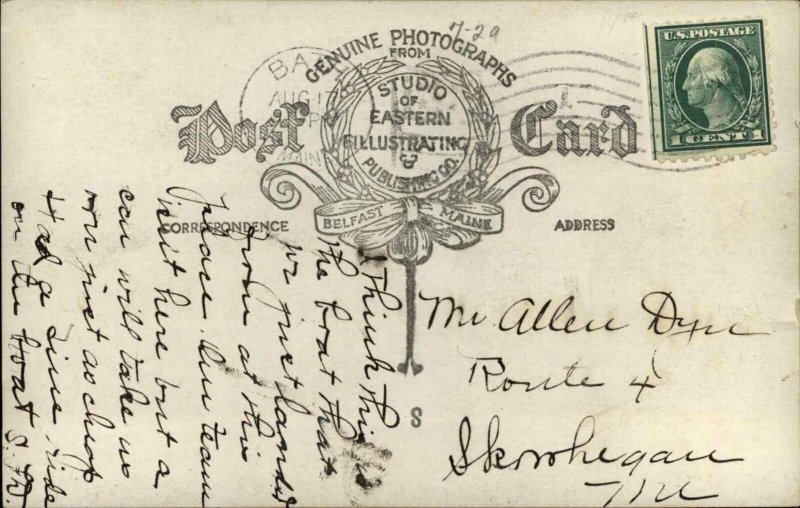 7-29
GENUINE PHOTOGRAPHS
FROM
STUDIO
OF
EASTERN
ILLUSTRATING
&
PUBLISHING CO.
BELFAST MAINE
Post Card
BA
AUG 17
P
U.S. POSTAGE
1 CENT 1
CORRESPONDENCE
ADDRESS
I Think this is
the boat that
we just landed
from at this
place. Our team
isnt here but a
car will take us
on just as cheap
Had a fine ride
on the boat S.W.
Mr Allen Dyer
Route 4
Skowhegan
Me
S